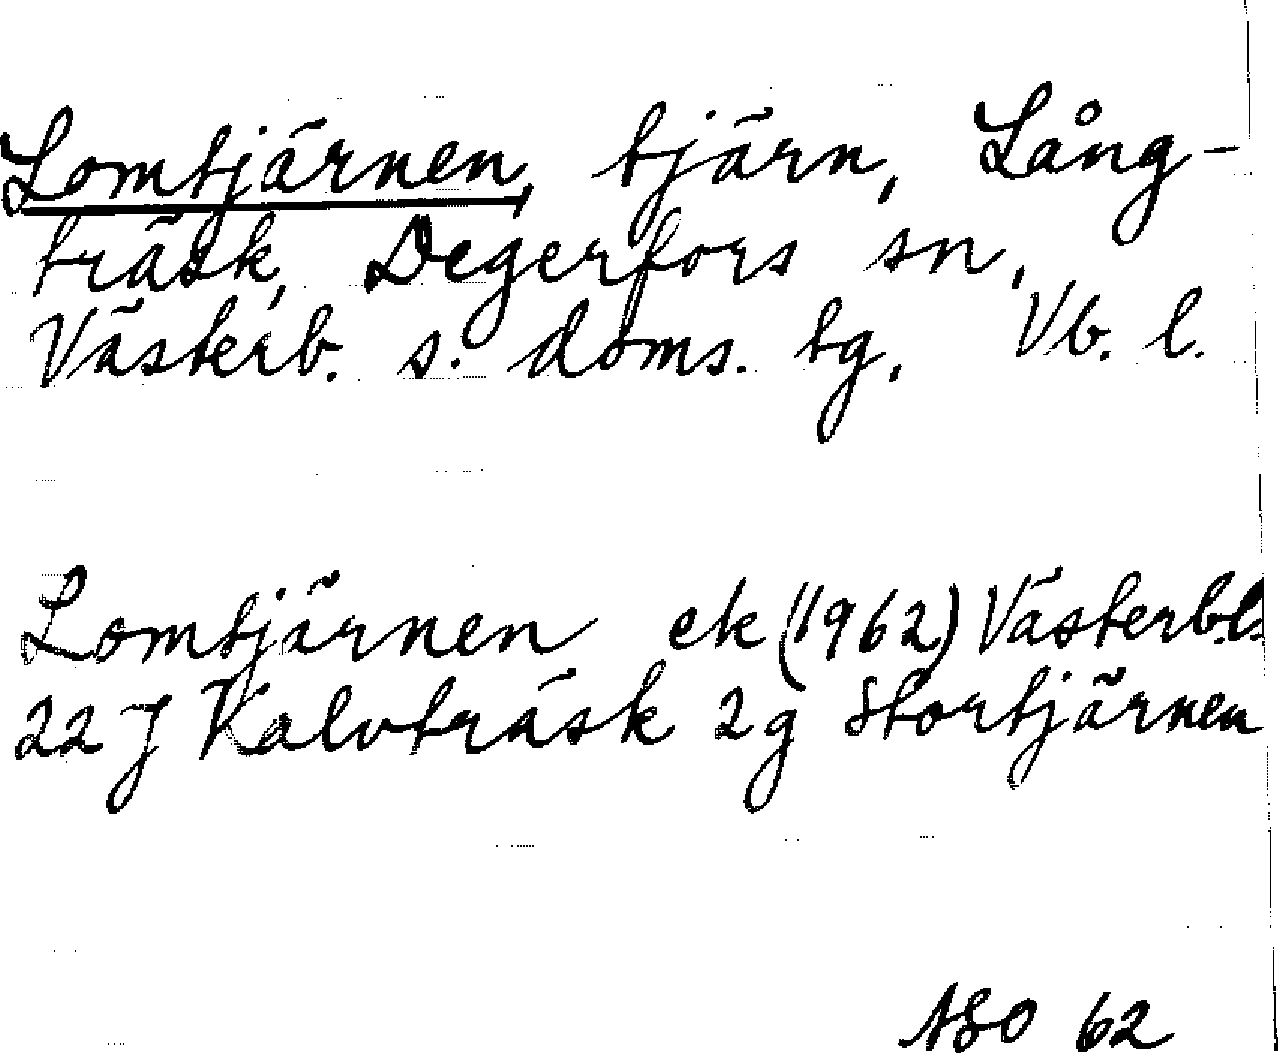 Lomtjärnen, tjärn, Lång-
träsk, Degerfors sn,
Västerb. s. doms. tg, Vb. l.
Lomtjärnen ek (1962) Västerb.l.
22 J Kalvträsk 2g Stortjärnen
ASO 62